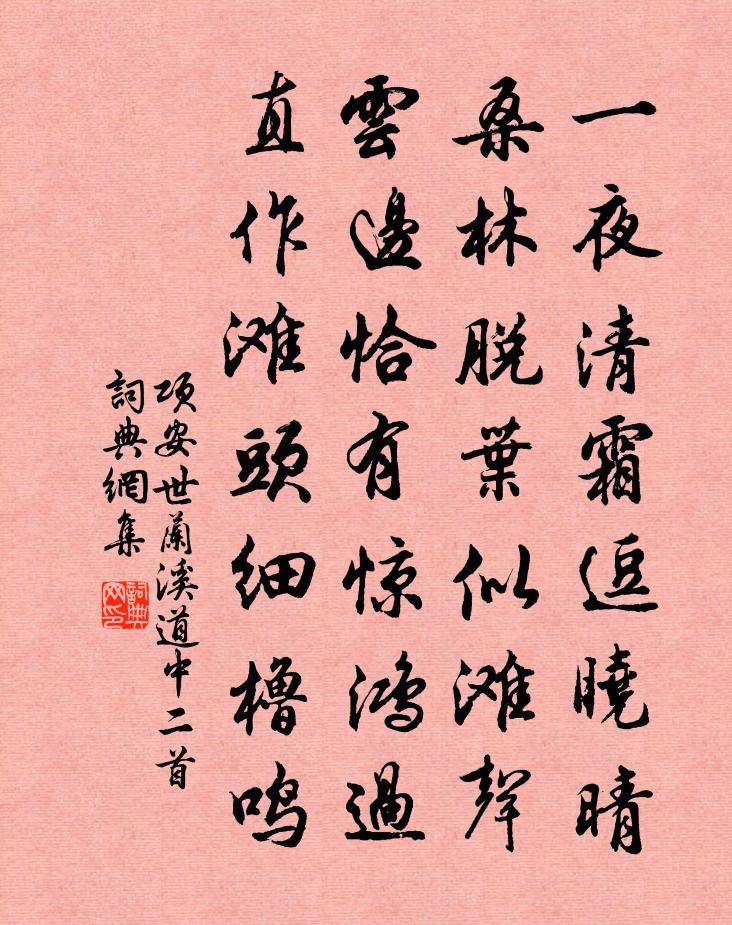 一夜清霜逗曉晴
桑林脱葉似滩聲
雲邊恰有惊鴻過
直作滩頭细櫓鸣
项安世蘭溪道中二首
詞典網集
詞典网印